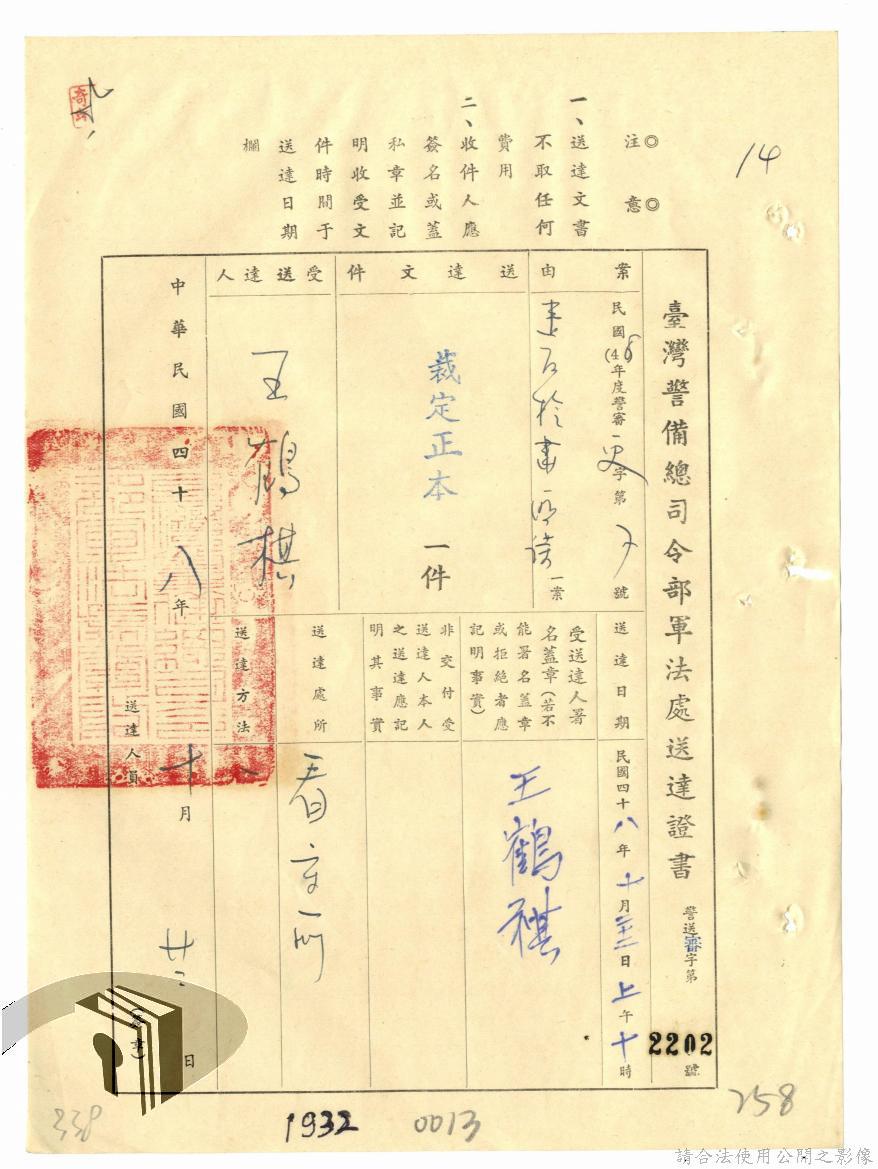 14
◎注意◎
一、送達文書
不取任何
費用
二、收件人應
簽名或蓋
私章並記
明收受文
件時間于
送達日期
欄
臺灣警備總司令部軍法處送達證書
警送審字第2202號
案由
民國(48年度警審更字第號
一案
送達文件
裁定正本一件
受送達人
王鶴棋
送達日期
民國四十八年十月廿三日上午十時
受送達人署
名蓋章(若不
能署名蓋章
或拒絕者應
記明事實)
王鶴祺
非交付受
送達人本人
之送達應記
明其事實
送達處所
看守所
送達方法
中華民國四十八年十月廿三日
送達人員
(簽章)
338
1932
0013
258
請合法使用公開之影像